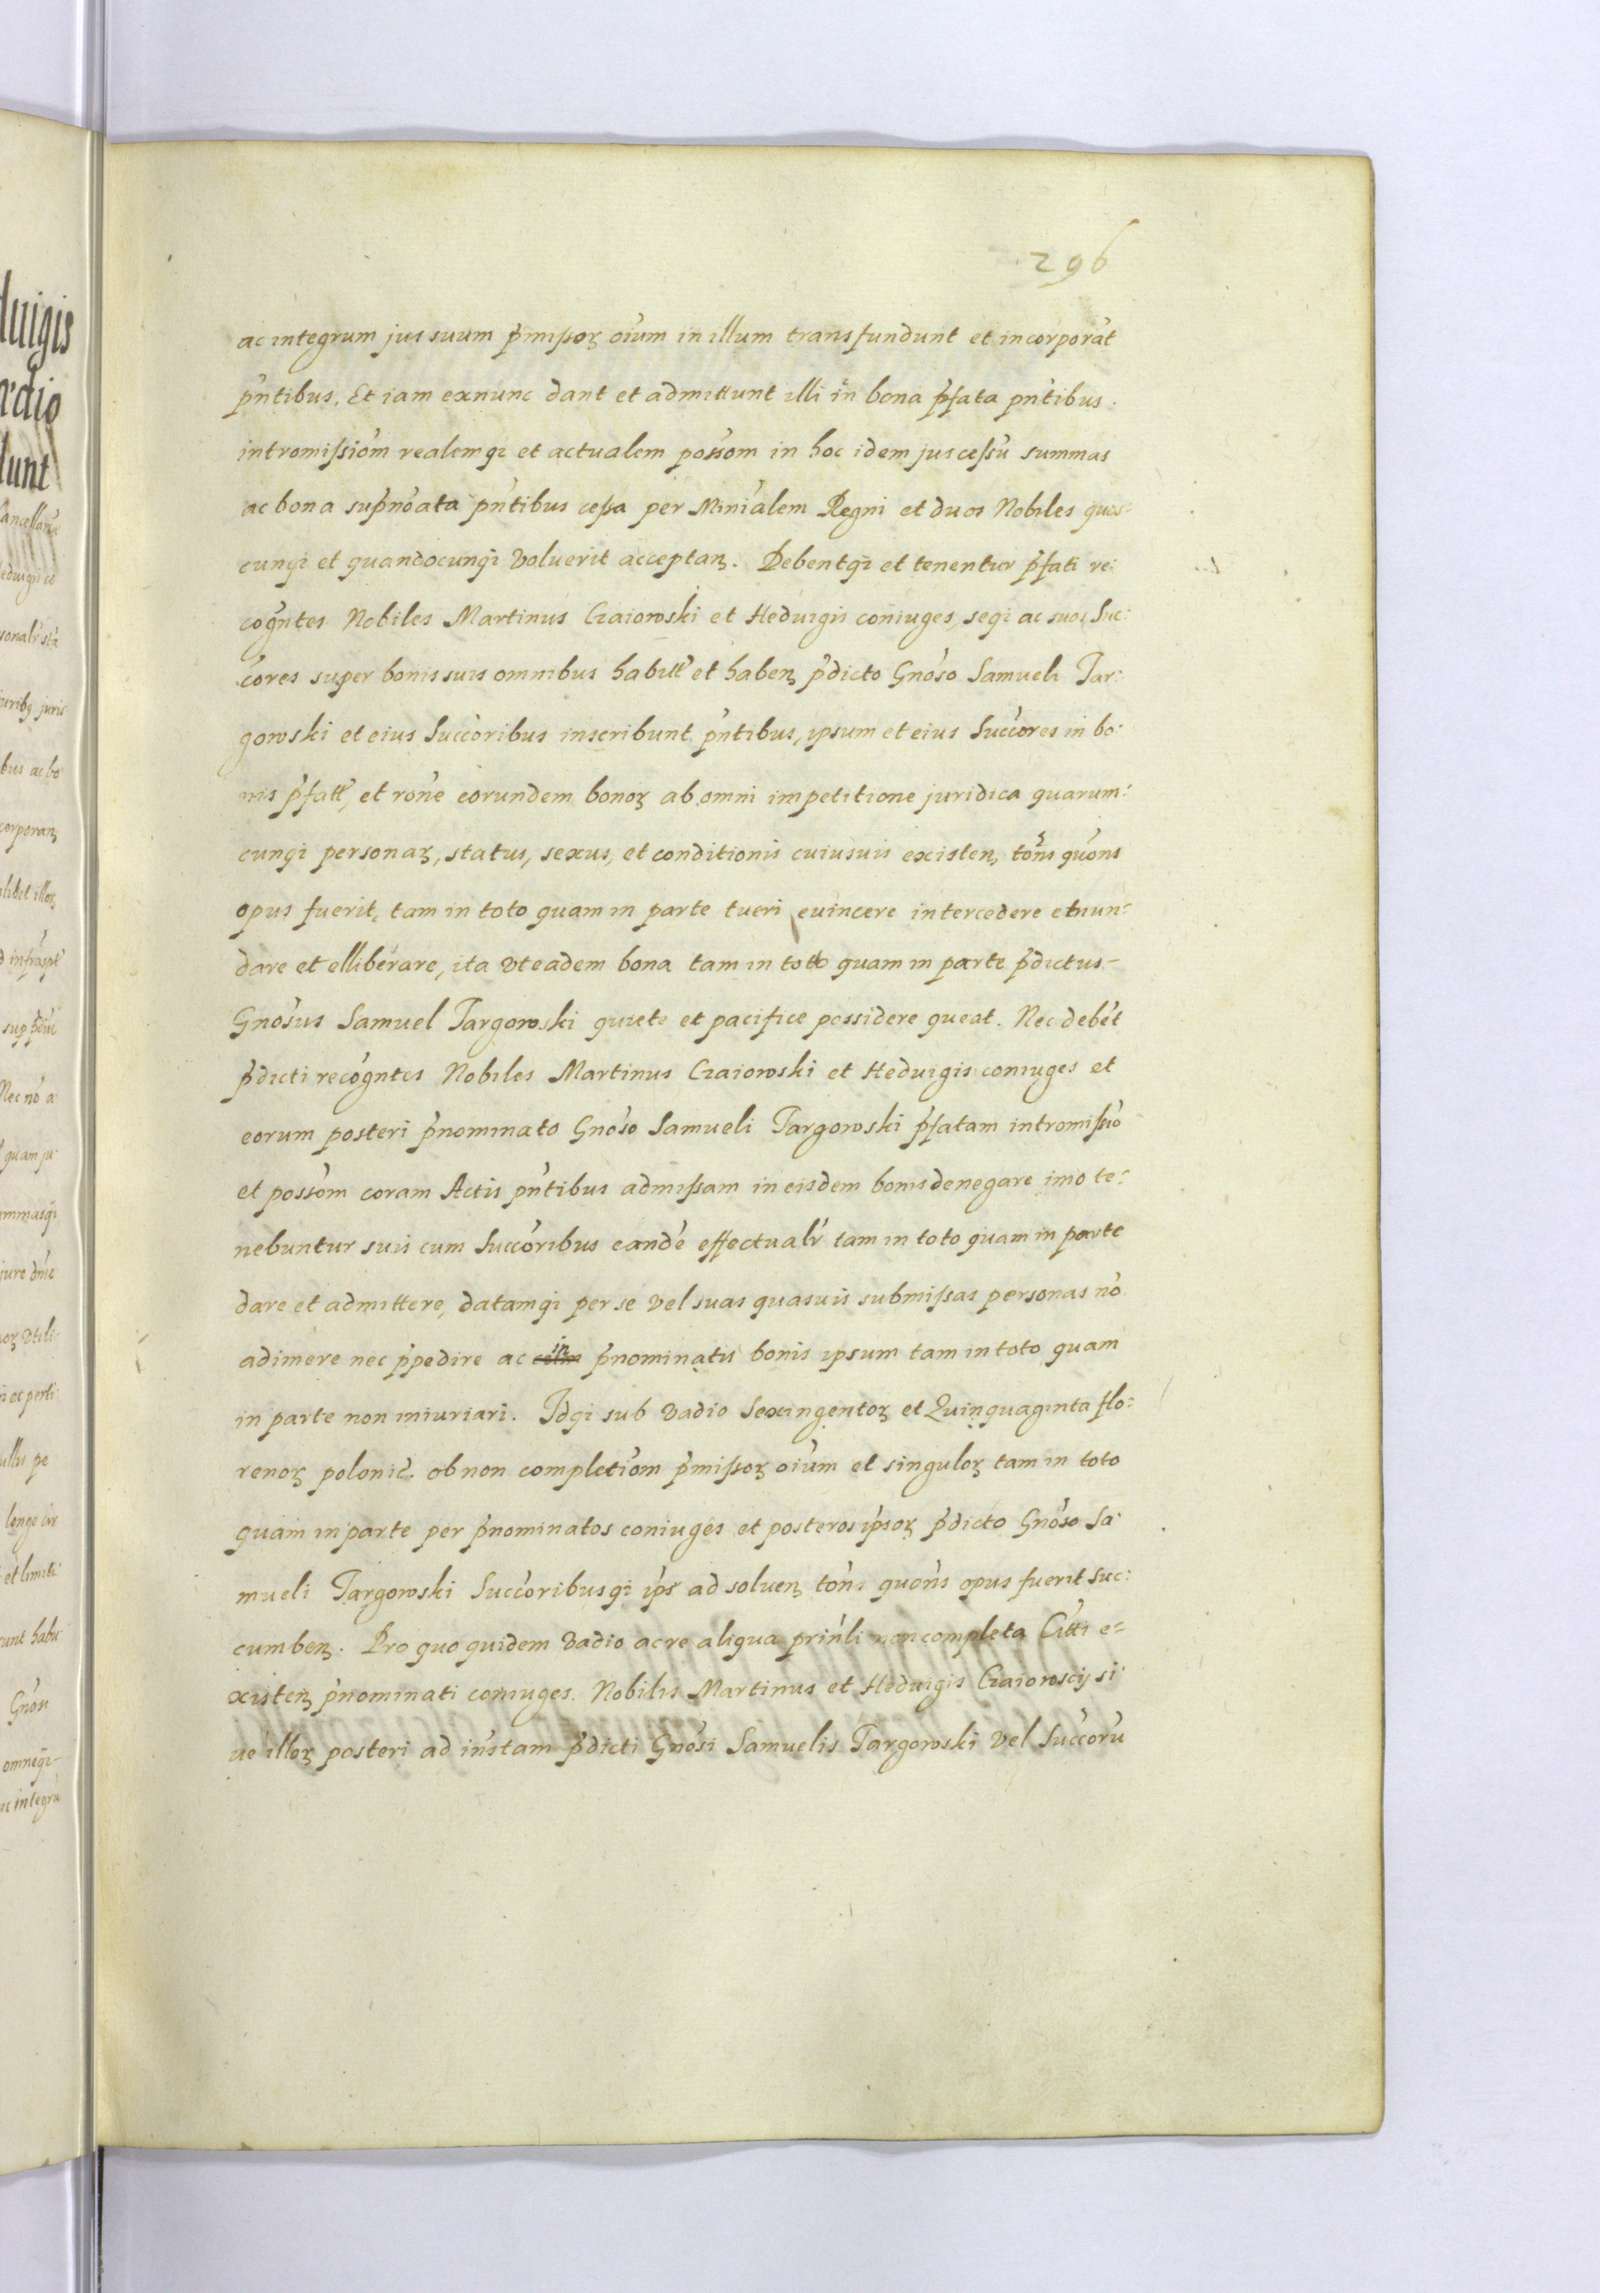 296
ac integrum jus suum p̃missoꝝ oi͂um in illum transfundunt et incorporãt
p̃ntibus. Et iam exnunc dant et admittunt illi in bona p̃fata pñtibus.
intromissiõm realemq; et actualem possõm in hoc idem jus cessũ summas
ac bona sup̃nõata pñtibus cessa per Miniãlem Regni et duos Nobiles quos:
cunq; et quandocunq; voluerit acceptañ. Debentq; et tenentur p̃fati re:
cogñtes Nobiles Martinus Czaiowski et Heduigis coniuges, seq; ac suos Suc:
cõres super bonis suis omnibus habitt̃ et habeñ p̃dicto Gnõso Samueli Tar:
gowski et eius Succõribus inscribunt p̃ntibus, ipsum et eius Succõres in bo:
nis p̃fatt̃, et rõne eorundem bonoꝝ ab omni impetitione juridica quarum:
cunq; personaꝝ, status, sexus, et conditionis cuiusuis existeñ, tõns quõns
opus fuerit, tam in toto quam in parte tueri euincere intercedere etnun:
dare et elliberare, ita vt eadem bona tam in toto quam in parte p̃dictus
Gnõsus Samuel Targowski quiete et pacifice possidere queat. Nec debẽt
p̃dicti recogñtes Nobiles Martinus Czaiowski et Heduigis coniuges et
eorum posteri p̃nominato Gnõso Samueli Targowski p̃fatam intromissiõ
et possõm coram Actis pñtibus admissam in eisdem bonis denegare imo te:
nebuntur suis cum Succõribus eandẽ effectualr̃ tam in toto quam in parte
dare et admittere, datamq; per se vel suas quasuis submissas personas nõ
adimere nec p̃pedire ac in p̃nominatis bonis ipsum tam in toto quam
in parte non iniuriari. Idq; sub vadio Sexingentoꝝ et Quinquaginta flo:
renoꝝ polonic̃. ob non completiõm p̃missoꝝ oi͂um et singuloꝝ tam in toto
quam in parte per p̃nominatos coniuges et posteros ip̃soꝝ p̃dicto Gnõso Sa:
mueli Targowski Succõribusq; ip̃s̃ ad solueñ tõns quõns opus fuerit suc:
cumbeñ. Pro quo quidem vadio ac re aliqua prinl̃i non completa Citti e=
xisteñ p̃nominati coniuges. Nobilis Martinus et Heduigis Czaiowscij si:
ue illoꝝ posteri ad iñstam p̃dicti Gnõsi Samuelis Targowski vel Succõrũ